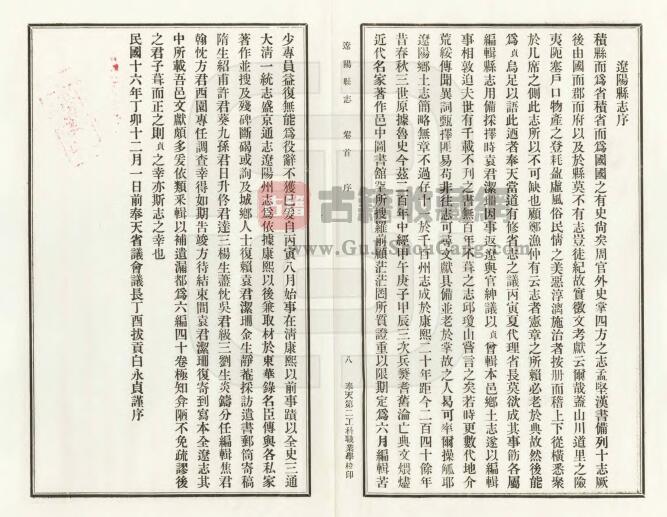 遼陽縣志序
積縣而爲省積省而爲國國之有史尙矣周官外史掌四方之志孟堅漢書備列十志厥
後由國而郡而府以及於縣莫不有志豈徒紀故實徵文考獻云爾哉蓋山川道里之險
夷阨塞戶口物產之登耗盈虛風俗民情之美惡淳漓施治者按册而稽上下從橫悉聚
於几席之側此志所以不可缺也顧鄭漁仲有云志者憲章之所賴必老於典故然後能
爲貞烏足以語此迺者奉天當道有修省志之議丙寅夏代理省長莫欲成其事飭各屬
編輯縣志用備採擇時袁君潔珊因事返遼與官紳議以貞曾輯本邑鄉土志遂以編輯
事相敦迫夫世有千載不刊之書無百年不葺之志邱瓊山嘗言之矣若時更數代地介
荒綏傳聞異詞甄擇匪易苟非往志可尋文獻具備並老於掌故之人易可率爾操觚耶
遼陽鄉土志簡略無章不過什一於千百州志成於康熙二十年距今二百四十餘年
昔春秋三世原據魯史今茲二百年中經甲午庚子甲辰三次兵燹耆舊淪亡典文煨燼
近代名家著作邑中圖書館罕所搜羅前顧茫茫罔所質證重以限期定爲六月編輯苦
遼陽縣志 卷首 序 八 奉天第二工科職業學校印
少專員益復無能爲役辭不獲已爰自丙寅八月始事在清康熙以前事蹟以全史三通
大清一統志盛京通志遼陽州志爲依據康熙以後兼取材於東華錄名臣傳與各私家
著作並搜及殘碑斷碣或詢及城鄉人士復賴袁君潔珊金生靜菴採訪遺書郵筒寄稿
隋生紹甫許君葵九孫君日升佟君達三楊生藎忱吳君祓三劉生炎鑄分任編輯焦君
翰忱方君西園專任調查幸得如期告竣方待結束間袁君潔珊復寄到寫本全遼志其
中所載吾邑文獻頗多爰依類釆輯以補遺漏都爲六編四十卷極知弇陋不免疏謬後
之君子葺而正之則貞之幸亦斯志之幸也
民國十六年丁卯十二月一日前奉天省議會議長丁酉拔貢白永貞謹序
古籍收藏網
www.GuJiShouCang.com